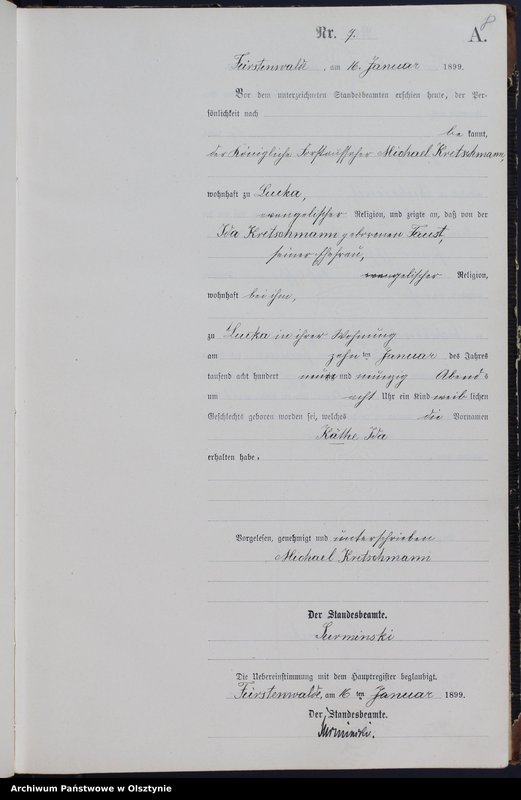 8
Nr. 9.
A.
Fürstenwalde, am 16. Januar 1899.
Vor dem unterzeichneten Standesbeamten erschien heute, der Per-
sönlichkeit nach
be kannt,
der Königliche Forstaufseher Michael Kretschmann,
wohnhaft zu Lucka,
evangelischer Religion, und zeigte an, daß von der
Ida Kretschmann geborenen Faust,
seiner Ehefrau,
evangelischer Religion,
wohnhaft bei ihm,
zu Lucka in ihrer Wohnung
am zehn ten Januar des Jahres
tausend acht hundert neun und neunzig Abend s
um acht Uhr ein Kind weib lichen
Geschlechts geboren worden sei, welches die Vornamen
Käthe Ida
erhalten habe.
Vorgelesen, genehmigt und unterschrieben
Michael Kretschmann
Der Standesbeamte.
Surminski
Die Uebereinstimmung mit dem Hauptregister beglaubigt.
Fürstenwalde, am 16 ten Januar 1899.
Der Standesbeamte.
Surminski.
Archiwum Państwowe w Olsztynie